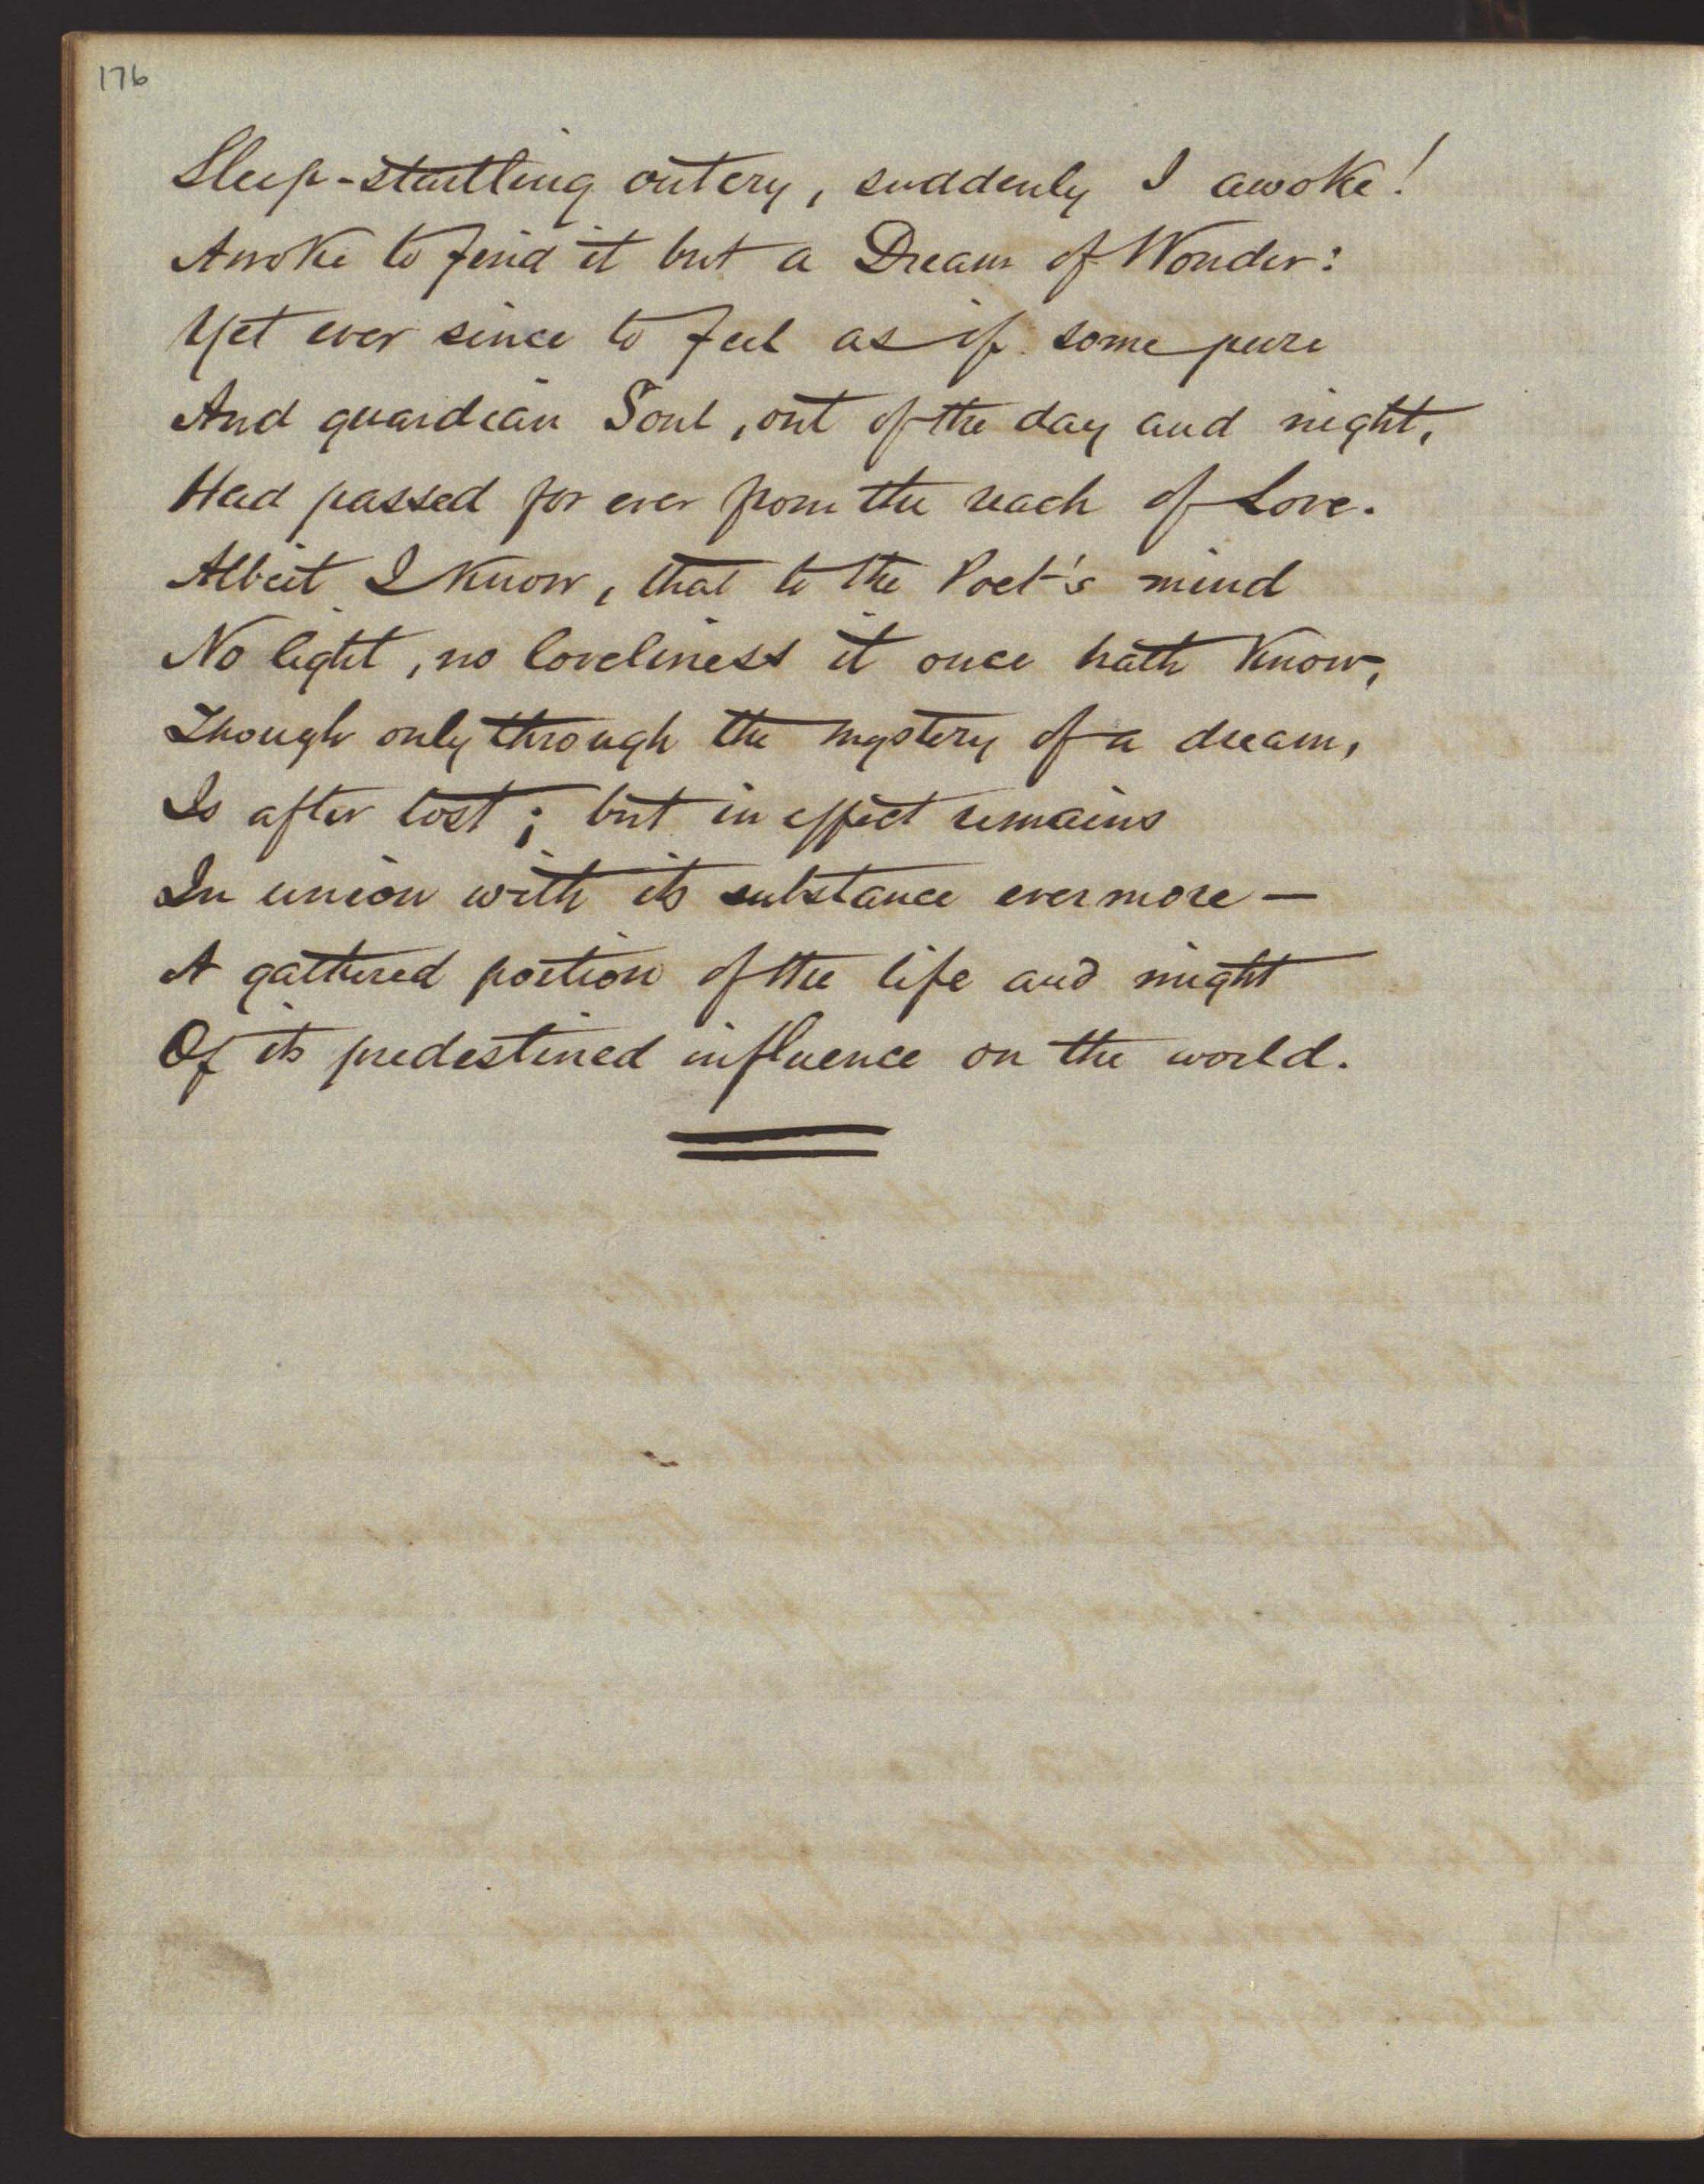 176
Sleep-startling outcry, suddenly I awoke!
Awoke to find it but a Dream of Wonder:
Yet ever since to feel as if some pure
And guardian Soul, out of the day and night,
Had passed for ever from the reach of Love.
Albeit I know, that to the Poet's mind
No light, no loveliness it once hath know,
Though only through the mystery of a dream,
Is after lost; but in effect remains
In union with its substance evermore —
A gathered portion of the life and might
Of its predestined influence on the world.